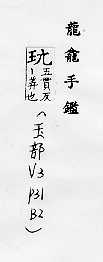 龍龕手鑑
玩五貫反
〻弄也
(玉部
V3
P31
B2)